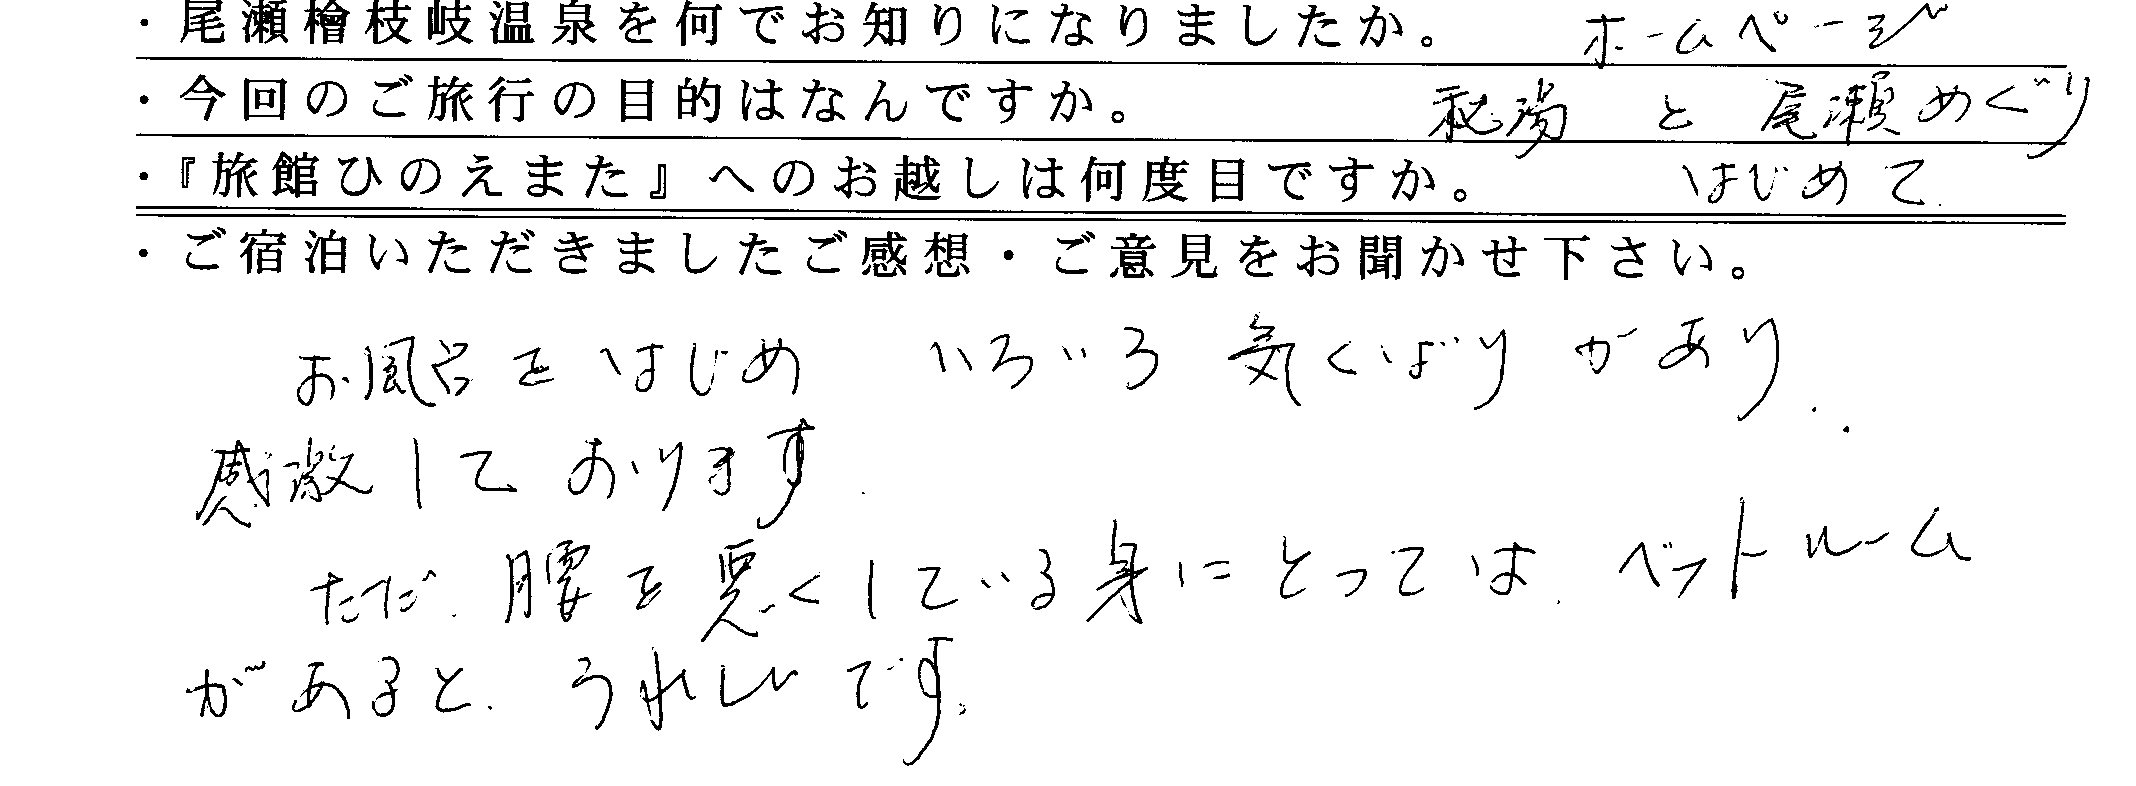 ・尾瀬檜枝岐温泉を何でお知りになりましたか。 ホームページ
・今回のご旅行の目的はなんですか。 秘湯 と 尾瀬めぐり
・『旅館ひのえまた』へのお越しは何度目ですか。 はじめて
・ご宿泊いただきましたご感想・ご意見をお聞かせ下さい。
お風呂をはじめ いろいろ 気くばりがあり、
感激しております。
ただ、腰を悪くしている身にとっては、ベットルーム
があると、うれしいです。